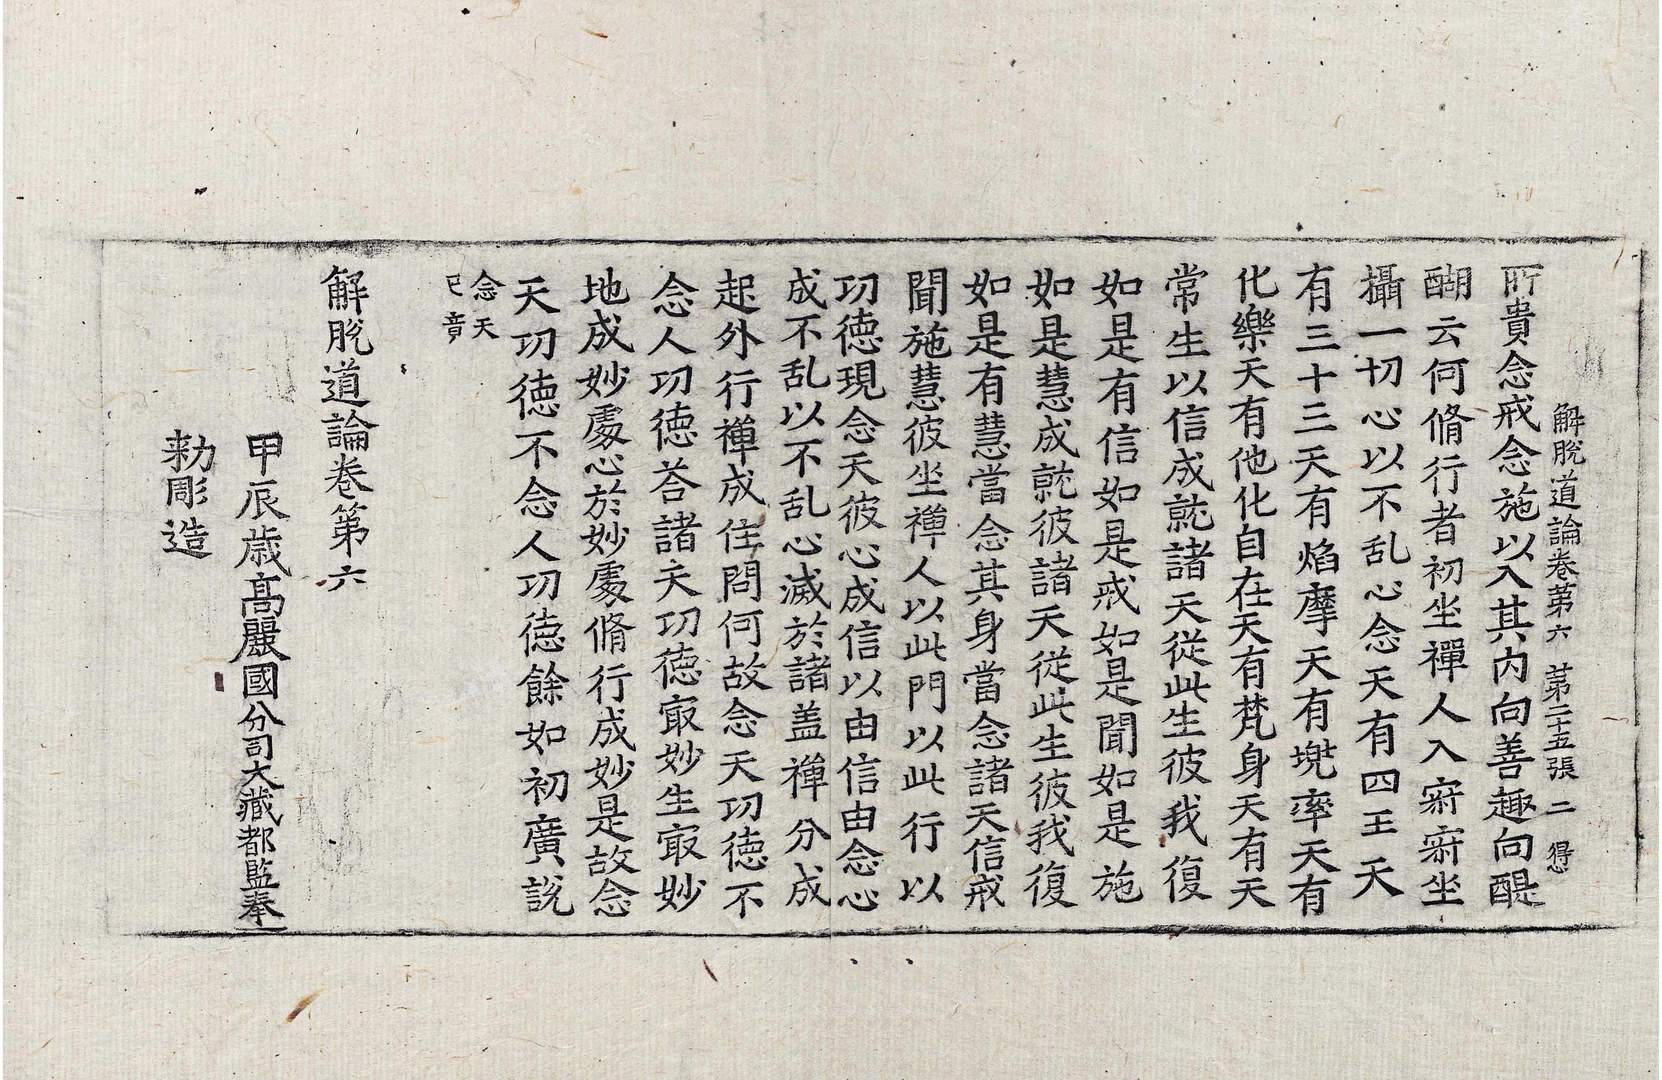 解脫道論卷第六 第二十五張 二 得
所貴念戒念施以入其內向善趣向醍
醐云何脩行者初坐禪人入寂寂坐
攝一切心以不乱心念天有四王天
有三十三天有焰摩天有兠率天有
化樂天有他化自在天有梵身天有天
常生以信成就諸天從此生彼我復
如是有信如是戒如是聞如是施
如是慧成就彼諸天從此生彼我復
如是有慧當念其身當念諸天信戒
聞施慧彼坐禪人以此門以此行以
功德現念天彼心成信以由信由念心
成不乱以不乱心滅於諸盖禪分成
起外行禪成住問何故念天功德不
念人功德荅諸天功德㝡妙生㝡妙
地成妙處心於妙處脩行成妙是故念
天功德不念人功德餘如初廣說
念天
已竟
解脫道論卷第六
甲辰歲高麗國分司大藏都監奉
勅彫造